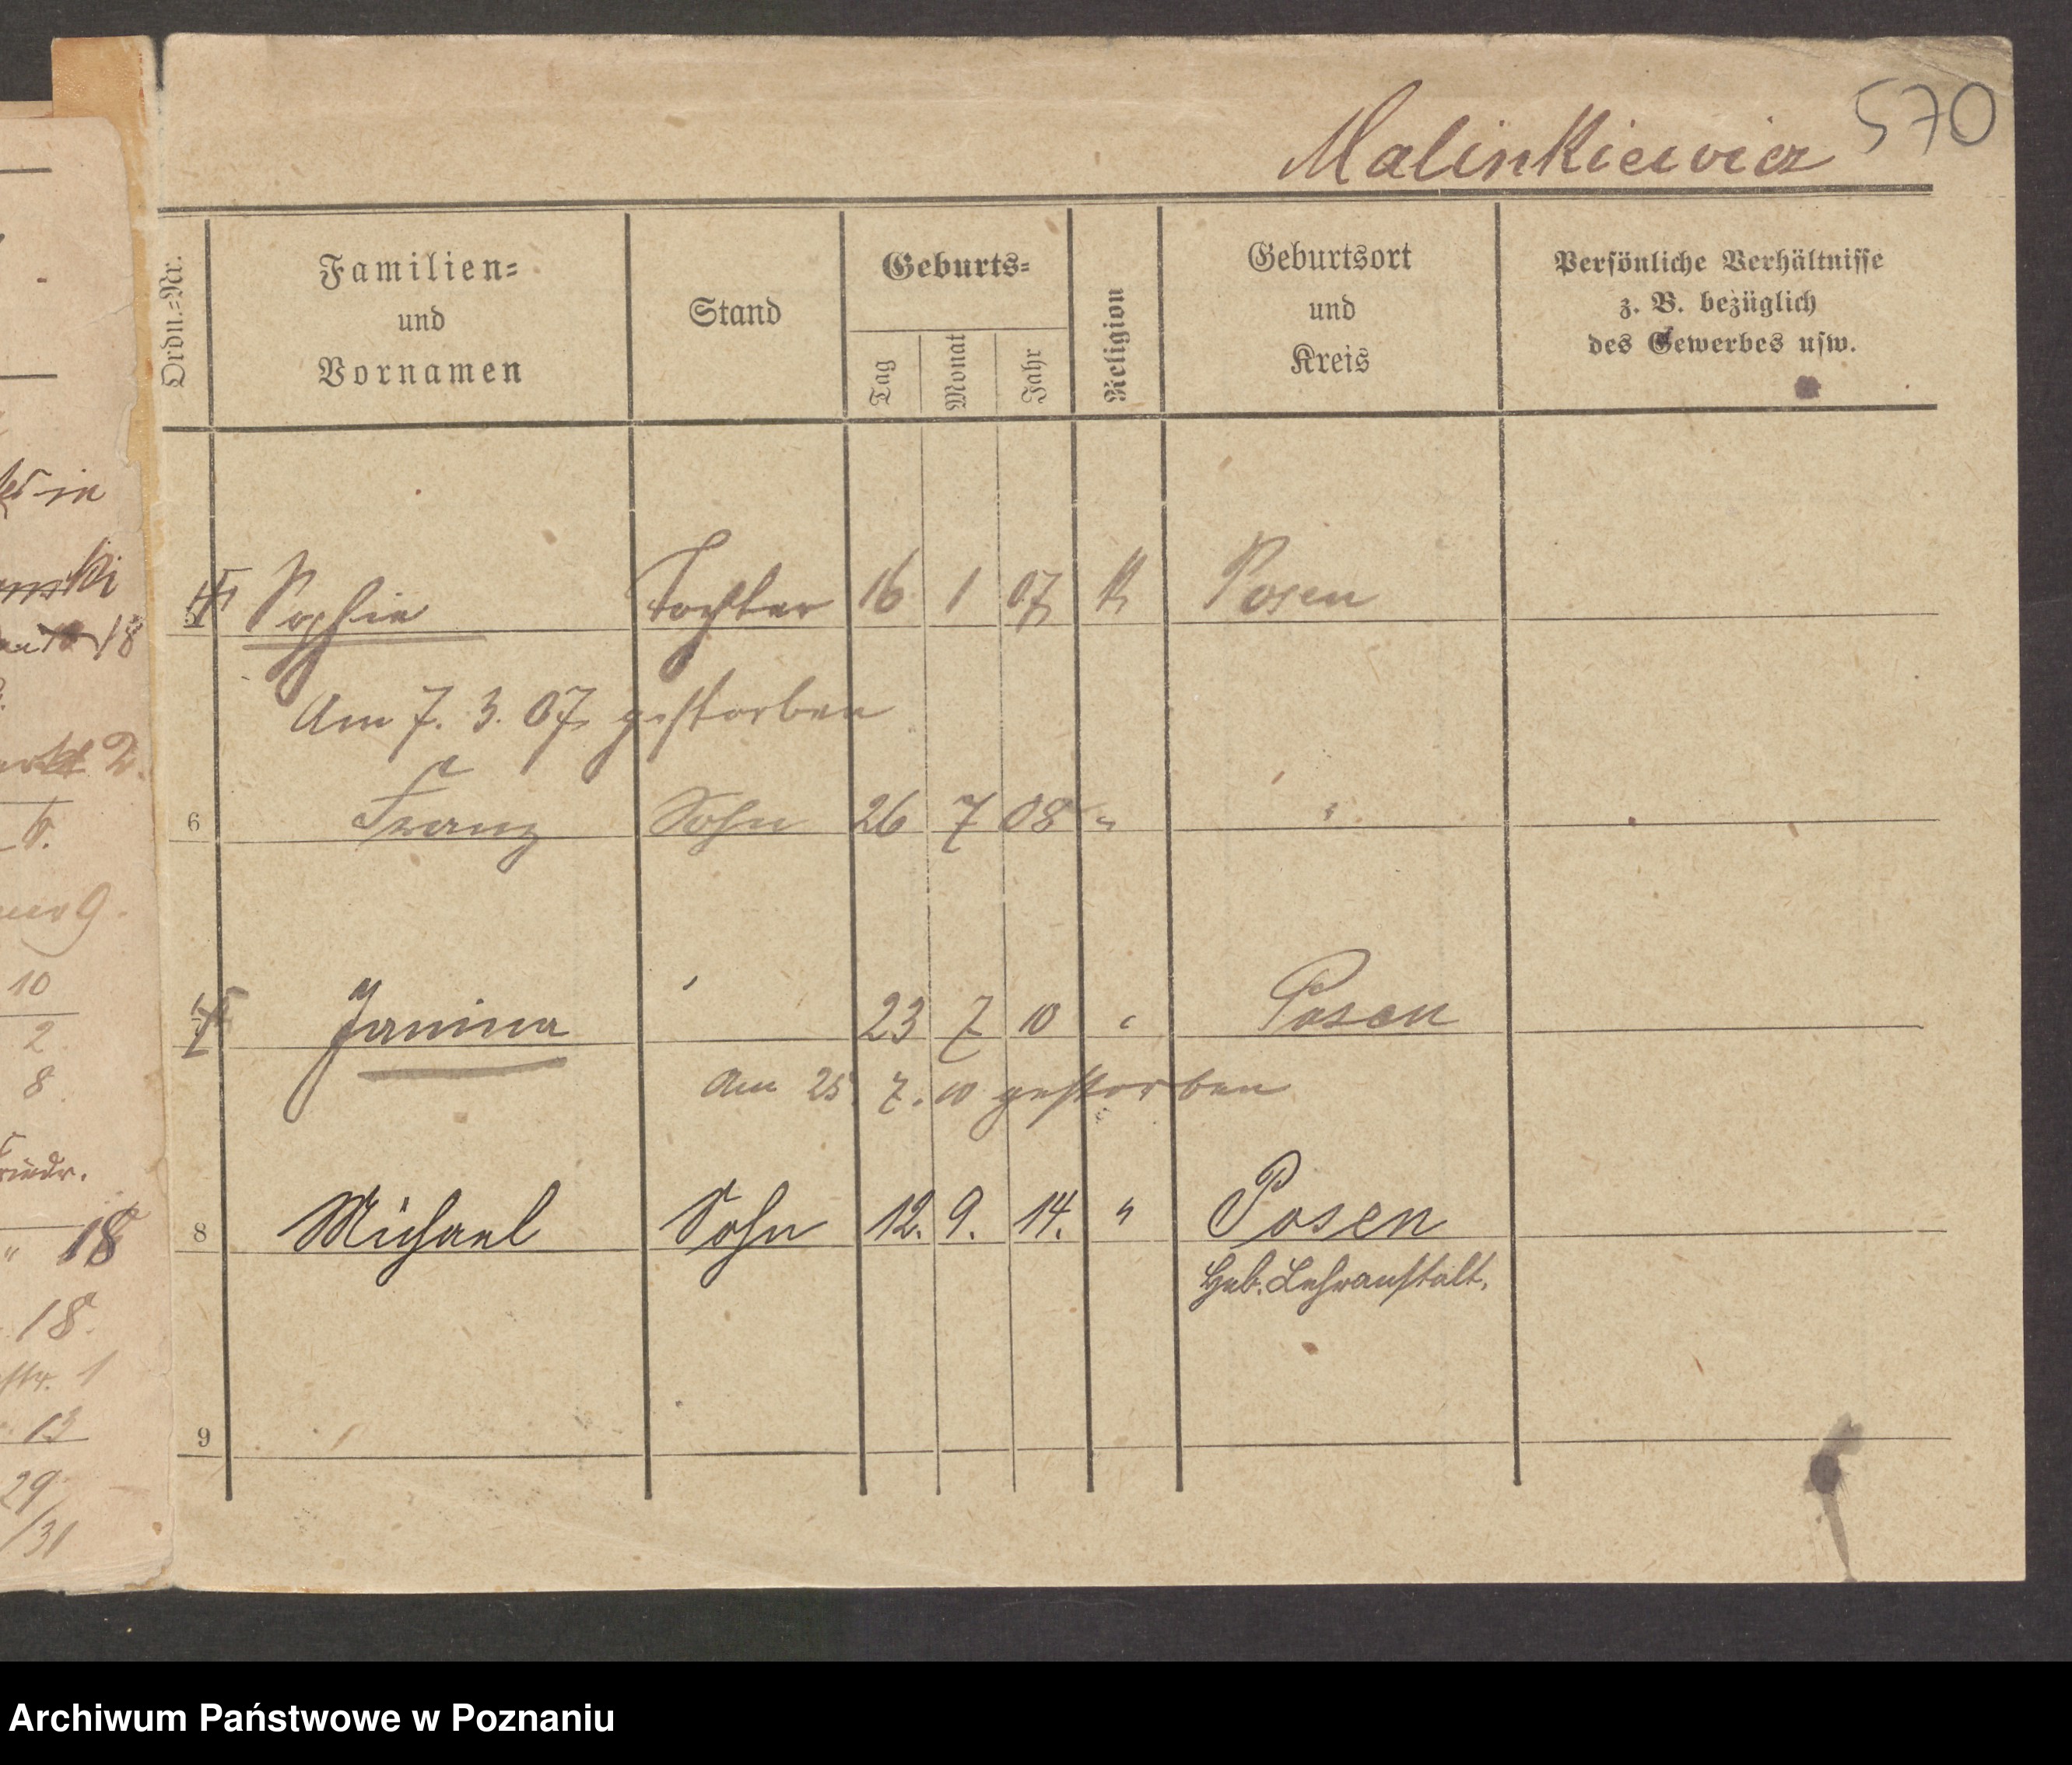 570
Malinkiewicz
Ordn.=Nr.
Familien=
und
Vornamen
Stand
Geburts=
Tag
Monat
Jahr
Religion
Geburtsort
und
Kreis
Persönliche Verhältnisse
z. B. bezüglich
des Gewerbes usw.
Sophie Tochter 16 1 07 k Posen
Am 7. 3. 07 gestorben
6 Franz Sohn 26 7 08 " "
Janina ' 23 7 10 " Posen
Am 25. 7. 10 gestorben
8 Michael Sohn 12. 9. 14. " Posen
Heb. Lehranstalt.
9
18
2.
6.
9.
10
2
8
riedr.
" 18
18.
str. 1
13
29
/31
Archiwum Państwowe w Poznaniu